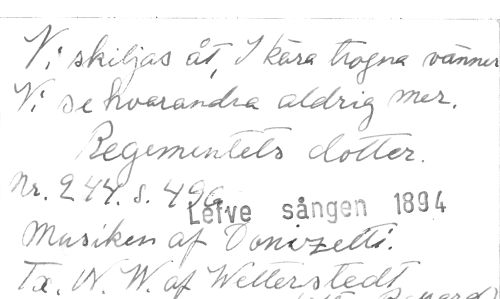 Vi skiljas åt, I kära trogna vänner
Vi se hvarandra aldrig mer.
Regementets dotter.
Nr. 244. s. 496
Lefve sången 1894
Musiken af Donizetti.
Tx. N. W. af Wetterstedt